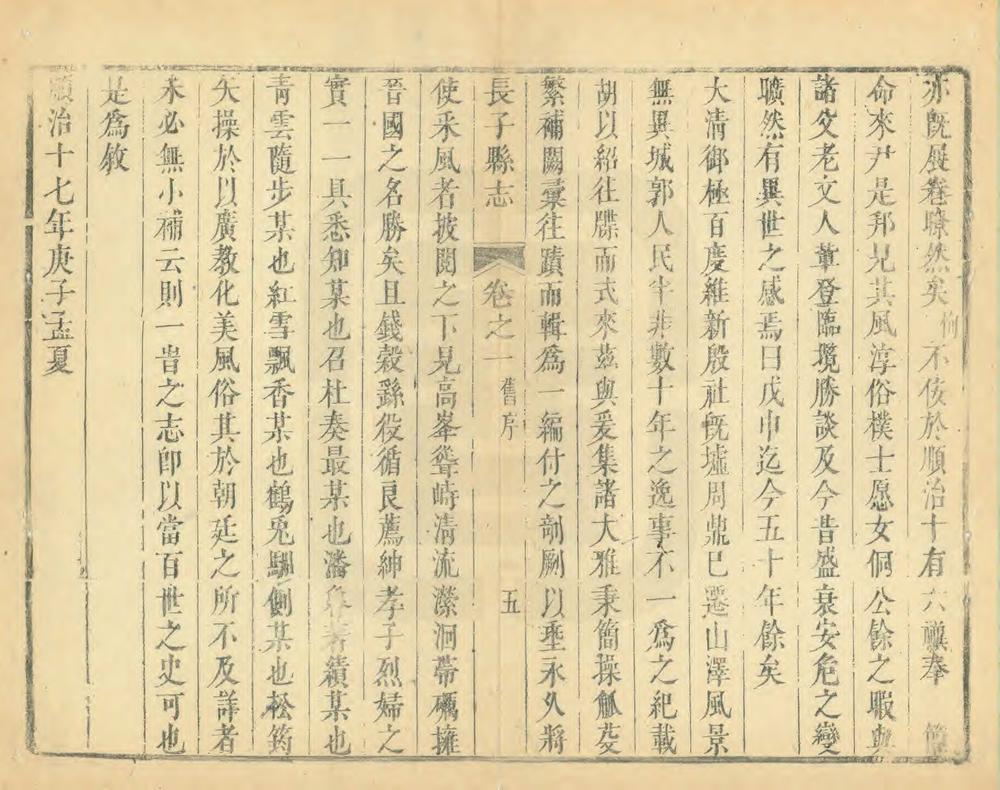 亦既展卷瞭然矣不佞於順治十有六禩奉簡
命來尹是邦見其風淳俗樸士愿女侗公餘之暇與
諸父老文人輩登臨攬勝談及今昔盛衰安危之變
曠然有異世之感焉曰戊申迄今五十年餘矣
大清御極百度維新殷社既墟周鼎已遷山澤風景
無異城郭人民半非數十年之逸事不一為之紀載
胡以紹往牒而式來茲與爰集諸大雅秉簡操觚芟
繁補闕彙往蹟而輯為一編付之剞劂以垂永久將
長子縣志 卷之一 舊序 五
使采風者披閱之下見高峯聳峙清流瀠洄帶礪擁
晉國之名勝矣且錢穀繇役循良薦紳孝子烈婦之
實一一具悉知某也召杜奏最某也潘著績某也
青雲隨步某也紅雪飄香某也鶴兎馴側某也松筠
矢操於以廣教化美風俗其於朝廷之所不及詳者
未必無小補云則一旹之志卽以當百世之史可也
是為敘
順治十七年庚子孟夏